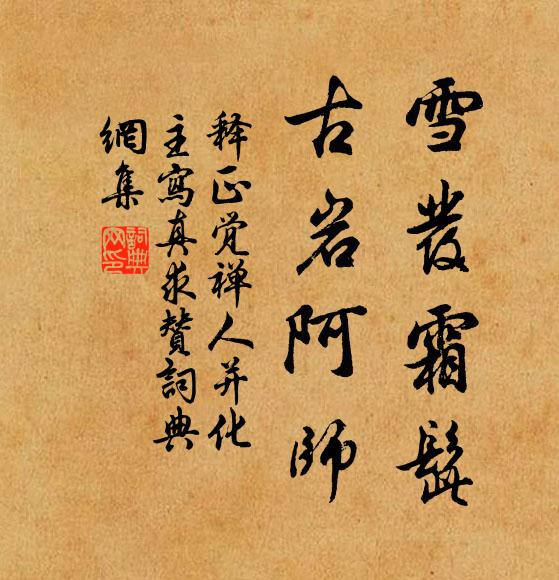 雪发霜髭
古岩阿师
释正觉禅人并化
主写真求赞词典
网集
词典网印